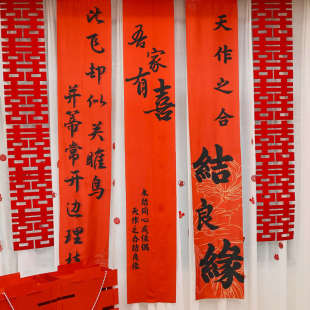 天作之合
結良緣
吾家
有喜
永結同心成佳偶
天作之合結良緣
比飞却似关雎鸟
并蒂常开连理枝